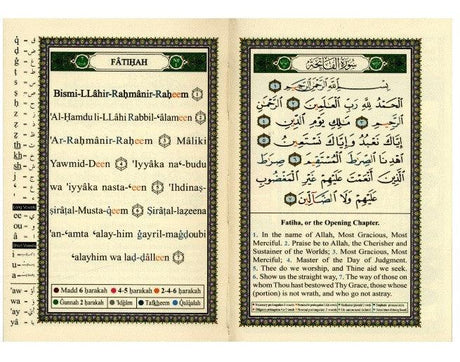 FĀTIḤAH
Bismi-LLâhir-Raḥmânir-Raḥeem ۝
'Al-Ḥamdu li-LLâhi Rabbil-ʿâlameen ۝
'Ar-Raḥmânir-Raḥeem ۝ Mâliki
Yawmid-Deen ۝ 'Iyyâka naʿ-budu
wa 'iyyâka nasta-ʿeen ۝ 'Ihdinaṣ-
ṣirâṭal-Musta-qeem ۝ Ṣirâṭal-lazeena
'an-ʿamta ʿalay-him ġayril-maġḍoubi
ʿalayhim wa laḍ-ḍâlleen ۝
Madd 6 ḥarakah 4-5 ḥarakah 2-4-6 ḥarakah
Ġunnah 2 ḥarakah 'Idġâm Tafkheem Qalqalah
سُورَةُ الفَاتِحَةِ
بِسْمِ اللَّهِ الرَّحْمَٰنِ الرَّحِيمِ ۝١
الْحَمْدُ لِلَّهِ رَبِّ الْعَالَمِينَ ۝٢ الرَّحْمَٰنِ
الرَّحِيمِ ۝٣ مَالِكِ يَوْمِ الدِّينِ ۝٤
إِيَّاكَ نَعْبُدُ وَإِيَّاكَ نَسْتَعِينُ ۝٥
اهْدِنَا الصِّرَاطَ الْمُسْتَقِيمَ ۝٦ صِرَاطَ
الَّذِينَ أَنْعَمْتَ عَلَيْهِمْ غَيْرِ الْمَغْضُوبِ
عَلَيْهِمْ وَلَا الضَّالِّينَ ۝٧
Fatiha, or the Opening Chapter.
1. In the name of Allah, Most Gracious, Most
Merciful. 2. Praise be to Allah, the Cherisher and
Sustainer of the Worlds; 3. Most Gracious, Most
Merciful; 4. Master of the Day of Judgment.
5. Thee do we worship, and Thine aid we seek.
6. Show us the straight way, 7. The way of those on
whom Thou hast bestowed Thy Grace, those whose
(portion) is not wrath, and who go not astray.